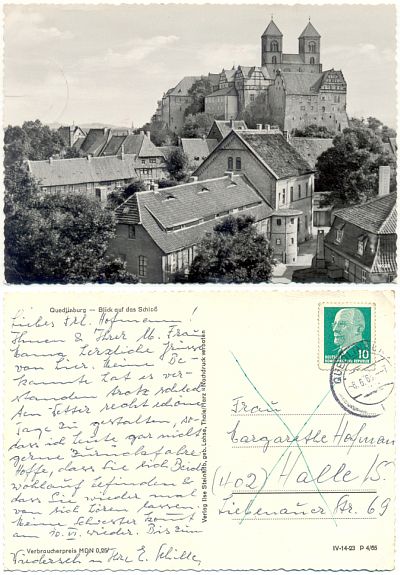 Quedlinburg — Blick auf das Schloß
Liebes Frl. Hofmann!
Ihnen & Ihrer M. Frau
Lang. Herzliche Grüsse
von hier. Meine Be-
kannte hat es ver-
standen trotz schlech-
ten Wetter recht schöne
Tage zu gestalten, so-
dass ich heute gar nicht
gerne zurückfahre.
Hoffe, dass Sie sich Beide
wohlauf befinden &
dass Sie wieder mal
von sich hören lassen.
Meine Schwester kommt
am 10. wieder. Bis zum
Wiedersehn Ihre E. Schilling
Verbraucherpreis MDN 0,25
Verlag Ilse Steinbiß, geb. Lohse, Thale/Harz • Nachdruck verboten
DEUTSCHE DEMOKRATISCHE REPUBLIK
10
QUE
Frau
Margarethe Hofmann
(402) Halle/S.
Liebenauer Str. 69
IV-14-23 P 4/65